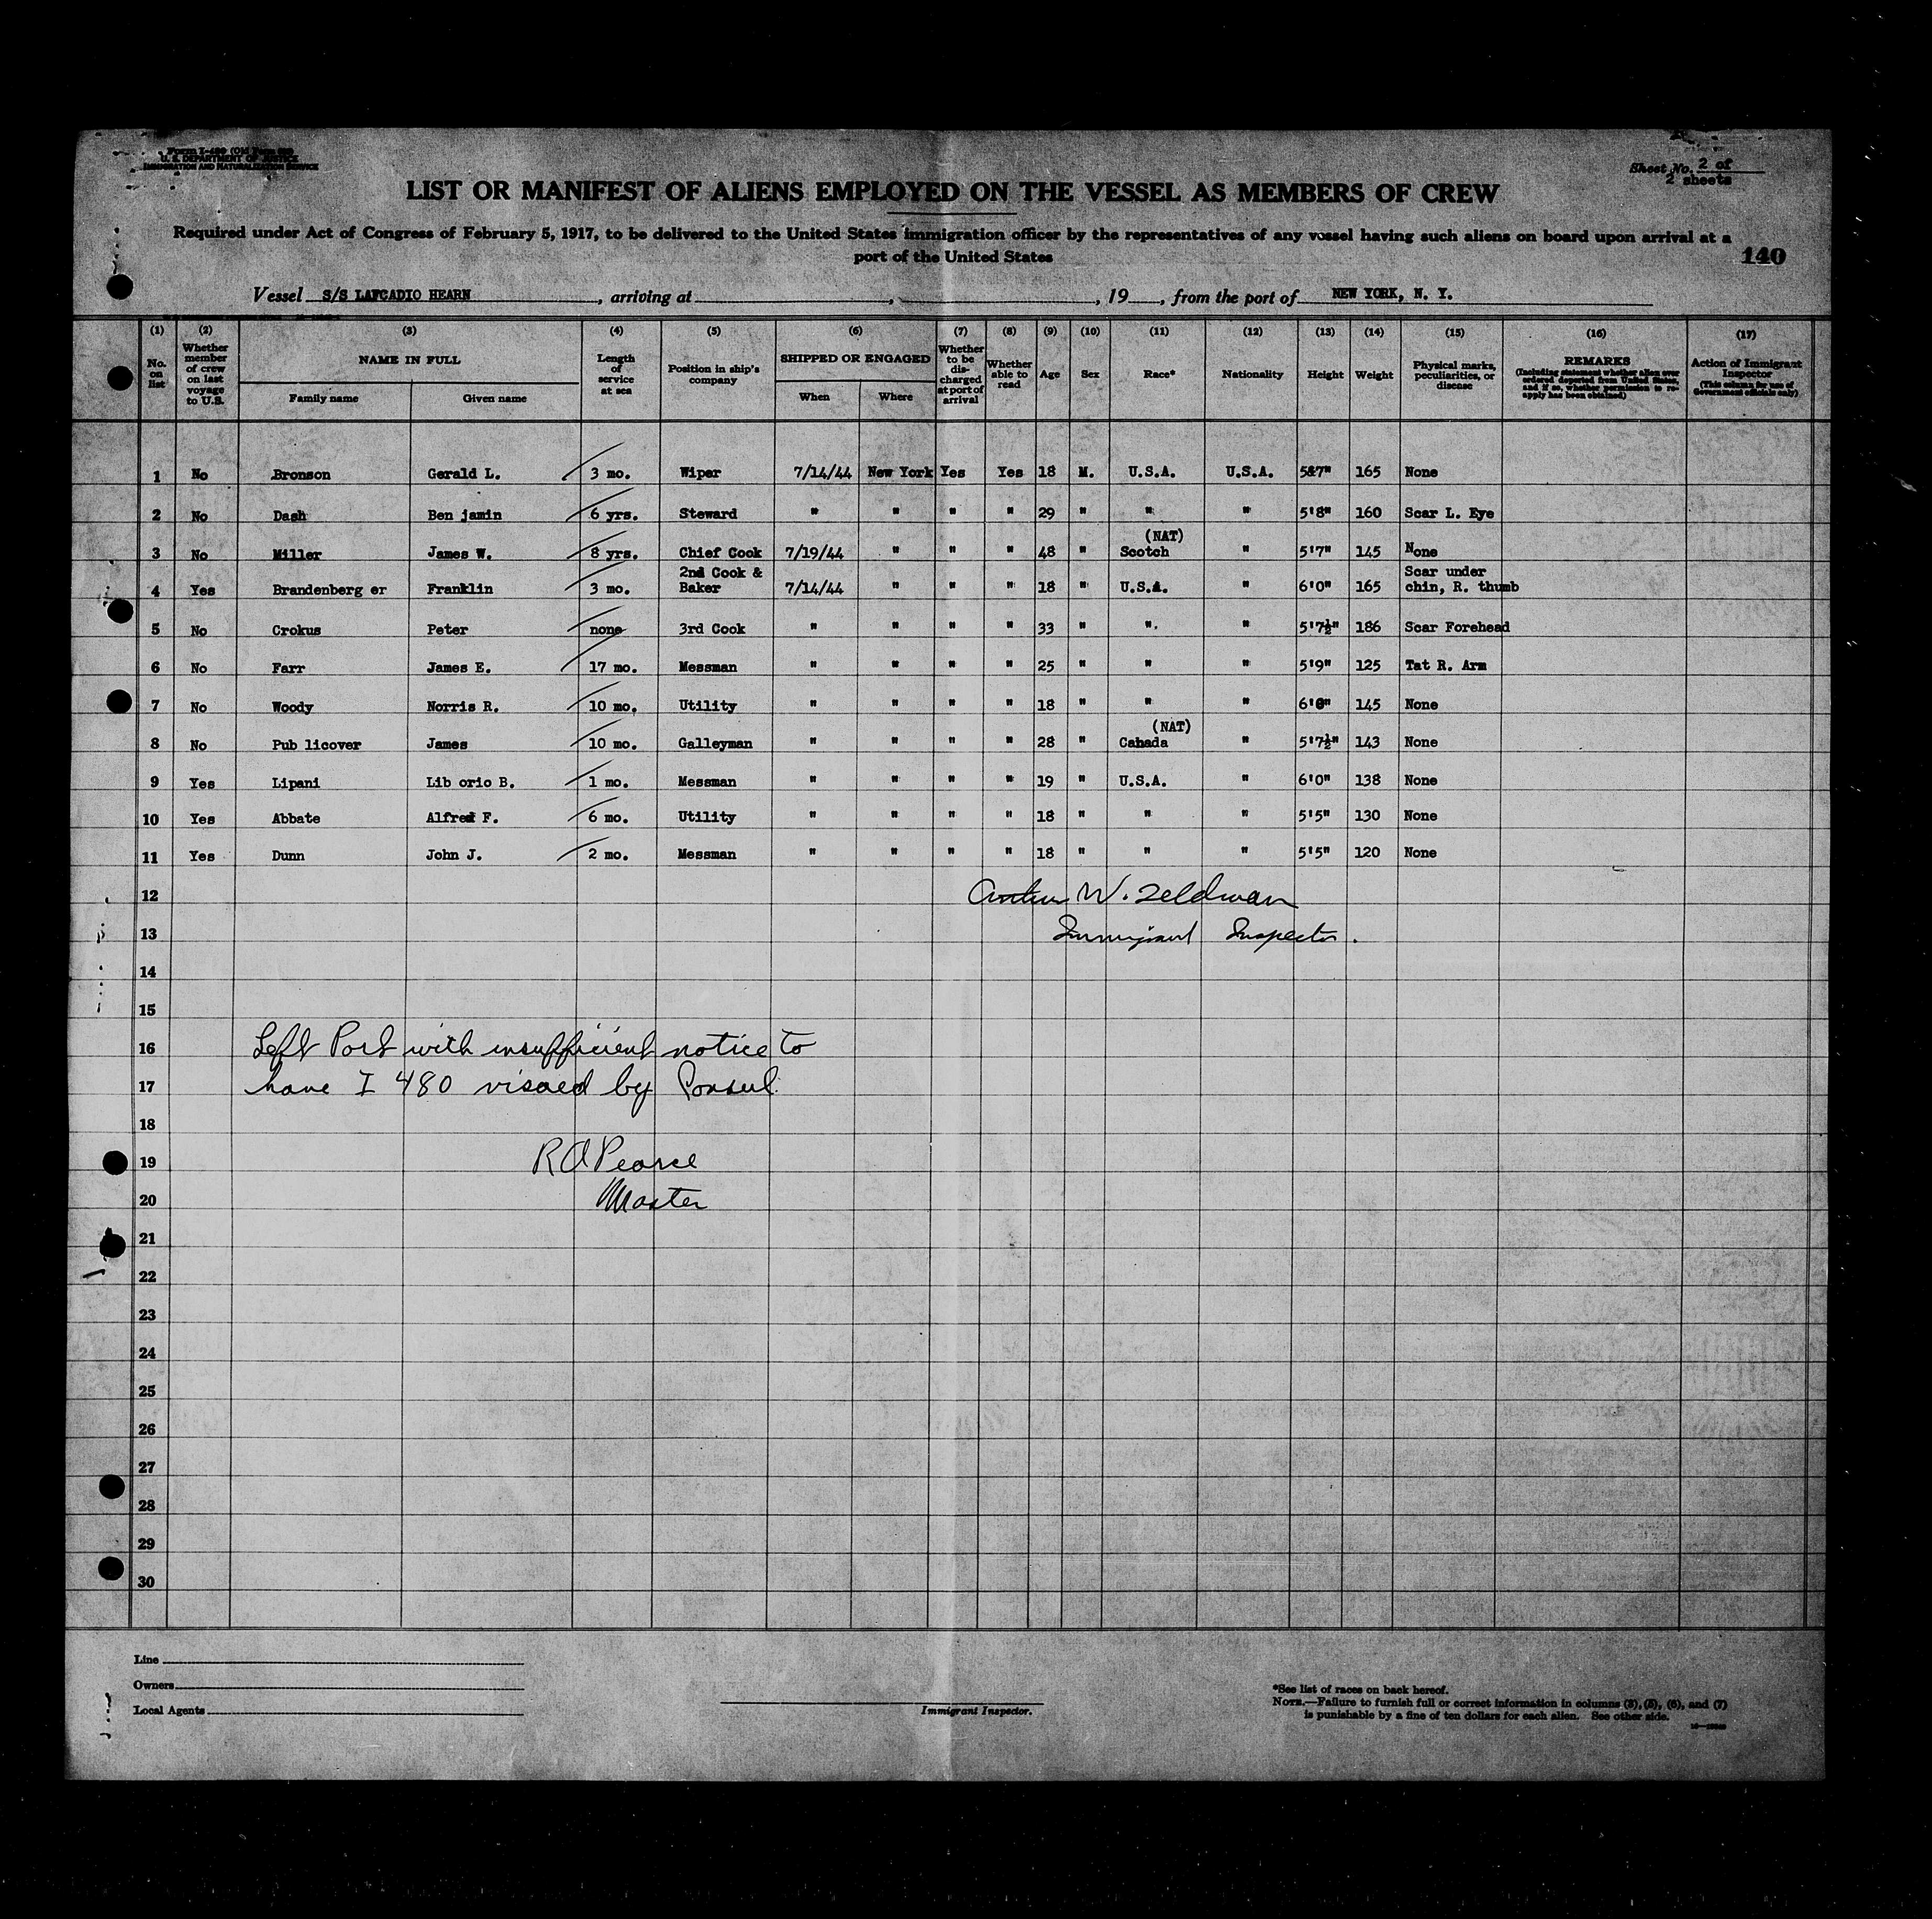 Form I-480 (Old Form 680)
U. S. DEPARTMENT OF JUSTICE
IMMIGRATION AND NATURALIZATION SERVICE
Sheet No. 2 of
2 sheets
LIST OR MANIFEST OF ALIENS EMPLOYED ON THE VESSEL AS MEMBERS OF CREW
Required under Act of Congress of February 5, 1917, to be delivered to the United States immigration officer by the representatives of any vessel having such aliens on board upon arrival at a
port of the United States
140
Vessel S/S LAFCADIO HEARN, arriving at , , 19 , from the port of NEW YORK, N. Y.
(1) (2) (3) (4) (5) (6) (7) (8) (9) (10) (11) (12) (13) (14) (15) (16) (17)
No. on list
Whether member of crew on last voyage to U.S.
NAME IN FULL
Family name Given name
Length of service at sea
Position in ship's company
SHIPPED OR ENGAGED
When Where
Whether to be discharged at port of arrival
Whether able to read
Age Sex Race* Nationality Height Weight
Physical marks, peculiarities, or disease
REMARKS
(Including statement whether alien ever ordered deported from United States, and if so, whether permission to reapply has been obtained)
Action of Immigrant Inspector
(This column for use of Government officials only)
1 No Bronson Gerald L. 3 mo. Wiper 7/14/44 New York Yes Yes 18 M. U.S.A. U.S.A. 5&7" 165 None
2 No Dash Ben jamin 6 yrs. Steward " " " " 29 " " " 5'8" 160 Scar L. Eye
(NAT)
3 No Miller James W. 8 yrs. Chief Cook 7/19/44 " " " 48 " Scotch " 5'7" 145 None
2nd Cook & Scar under
4 Yes Brandenberg er Franklin 3 mo. Baker 7/14/44 " " " 18 " U.S.A. " 6'0" 165 chin, R. thumb
5 No Crokus Peter none 3rd Cook " " " " 33 " ". " 5'7½" 186 Scar Forehead
6 No Farr James E. 17 mo. Messman " " " " 25 " " " 5'9" 125 Tat R. Arm
7 No Woody Norris R. 10 mo. Utility " " " " 18 " " " 6'0" 145 None
(NAT)
8 No Pub licover James 10 mo. Galleyman " " " " 28 " Cahada " 5'7½" 143 None
9 Yes Lipani Lib orio B. 1 mo. Messman " " " " 19 " U.S.A. " 6'0" 138 None
10 Yes Abbate Alfred F. 6 mo. Utility " " " " 18 " " " 5'5" 130 None
11 Yes Dunn John J. 2 mo. Messman " " " " 18 " " " 5'5" 120 None
12 W. Zeldman
13 Immigrant Inspector.
14
15
16 Left Port with insufficient notice to
17 have I 480 visaed by Consul.
18
19 R A Pearce
20 Master
21
22
23
24
25
26
27
28
29
30
Line
Owners
Local Agents
Immigrant Inspector.
*See list of races on back hereof.
NOTE.—Failure to furnish full or correct information in columns (3), (5), (6), and (7)
is punishable by a fine of ten dollars for each alien. See other side.